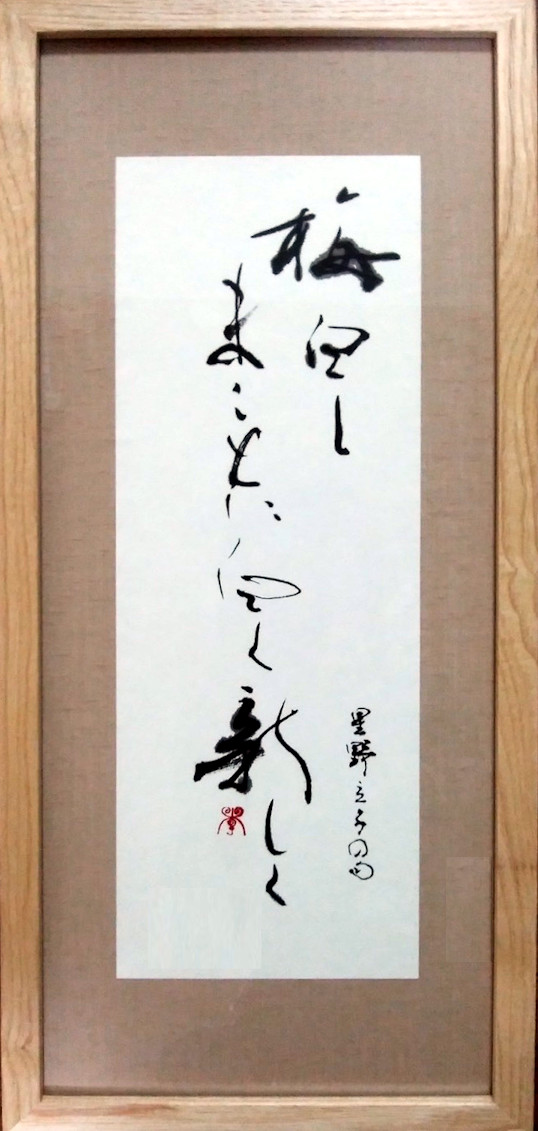 梅白し
まことに白く新しく
星野立子の句